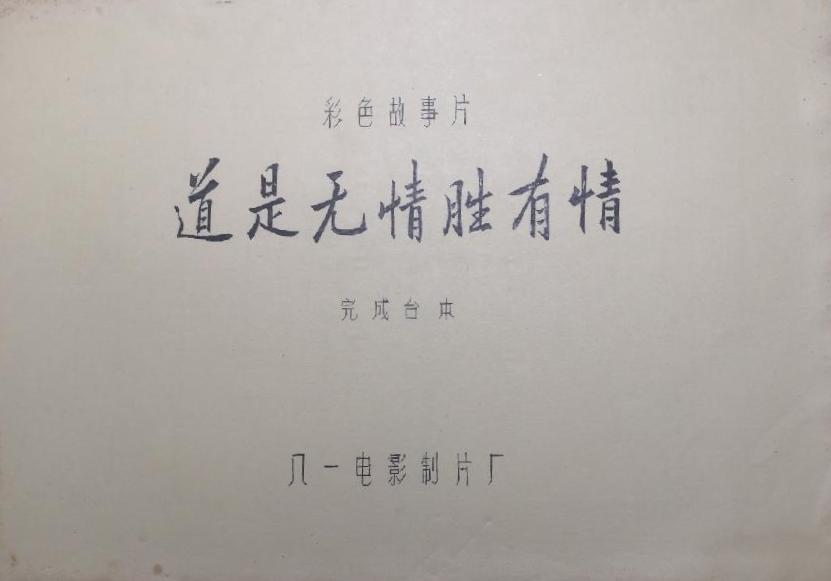 彩色故事片
道是无情胜有情
完成台本
八一电影制片厂